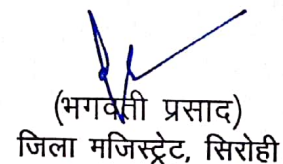 (भगवती प्रसाद)
जिला मजिस्ट्रेट, सिरोही